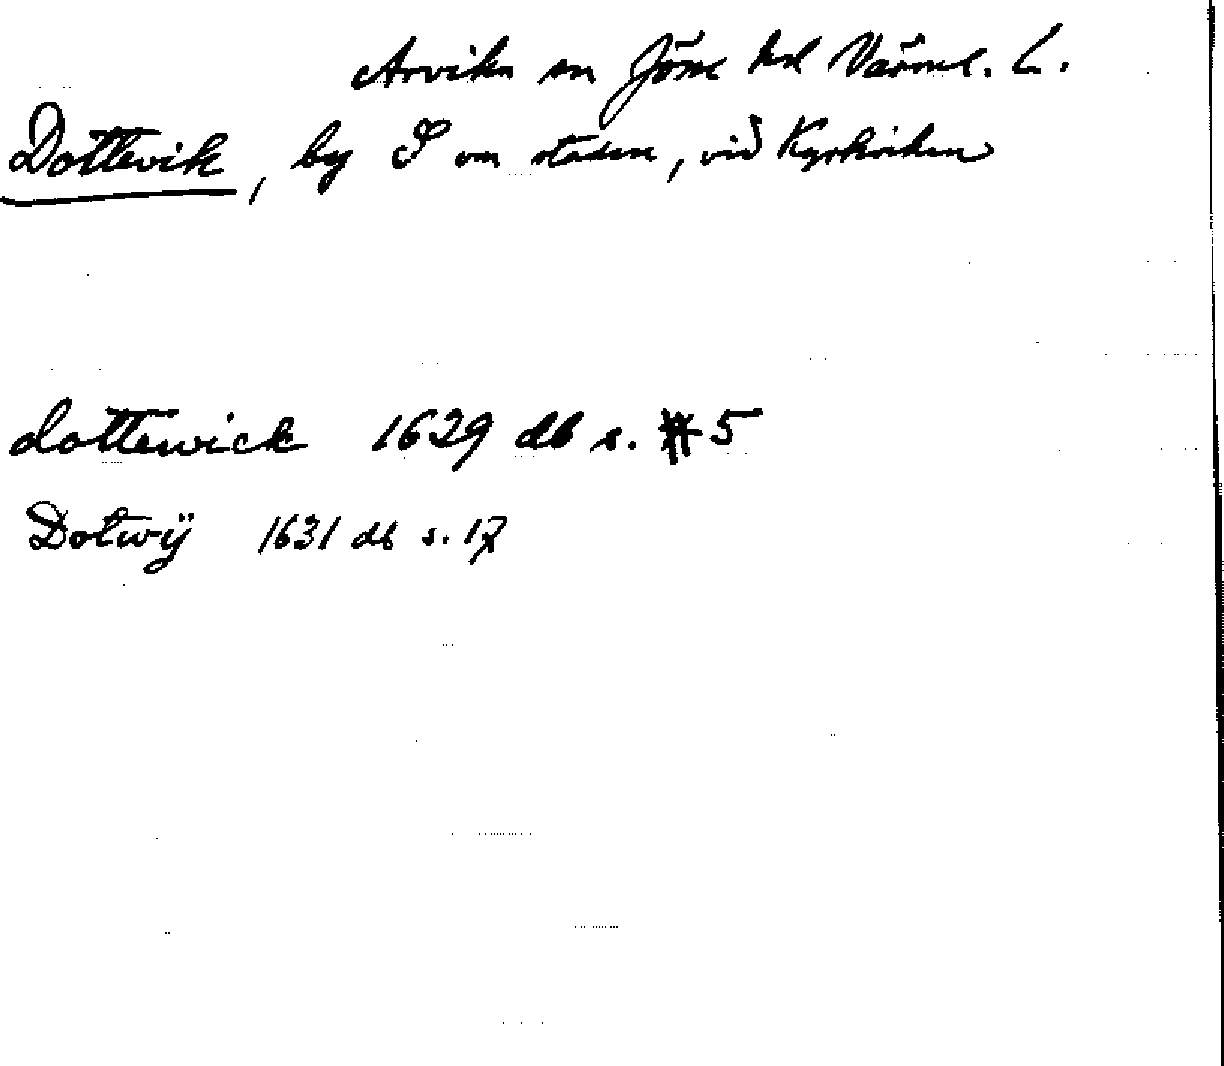 Arvika sn Jösse hd Värml. L.
Dottevik, by S om staden, vid Kyrkviken
dottewick 1629 db s. 5
Dotwÿ 1631 db s. 17